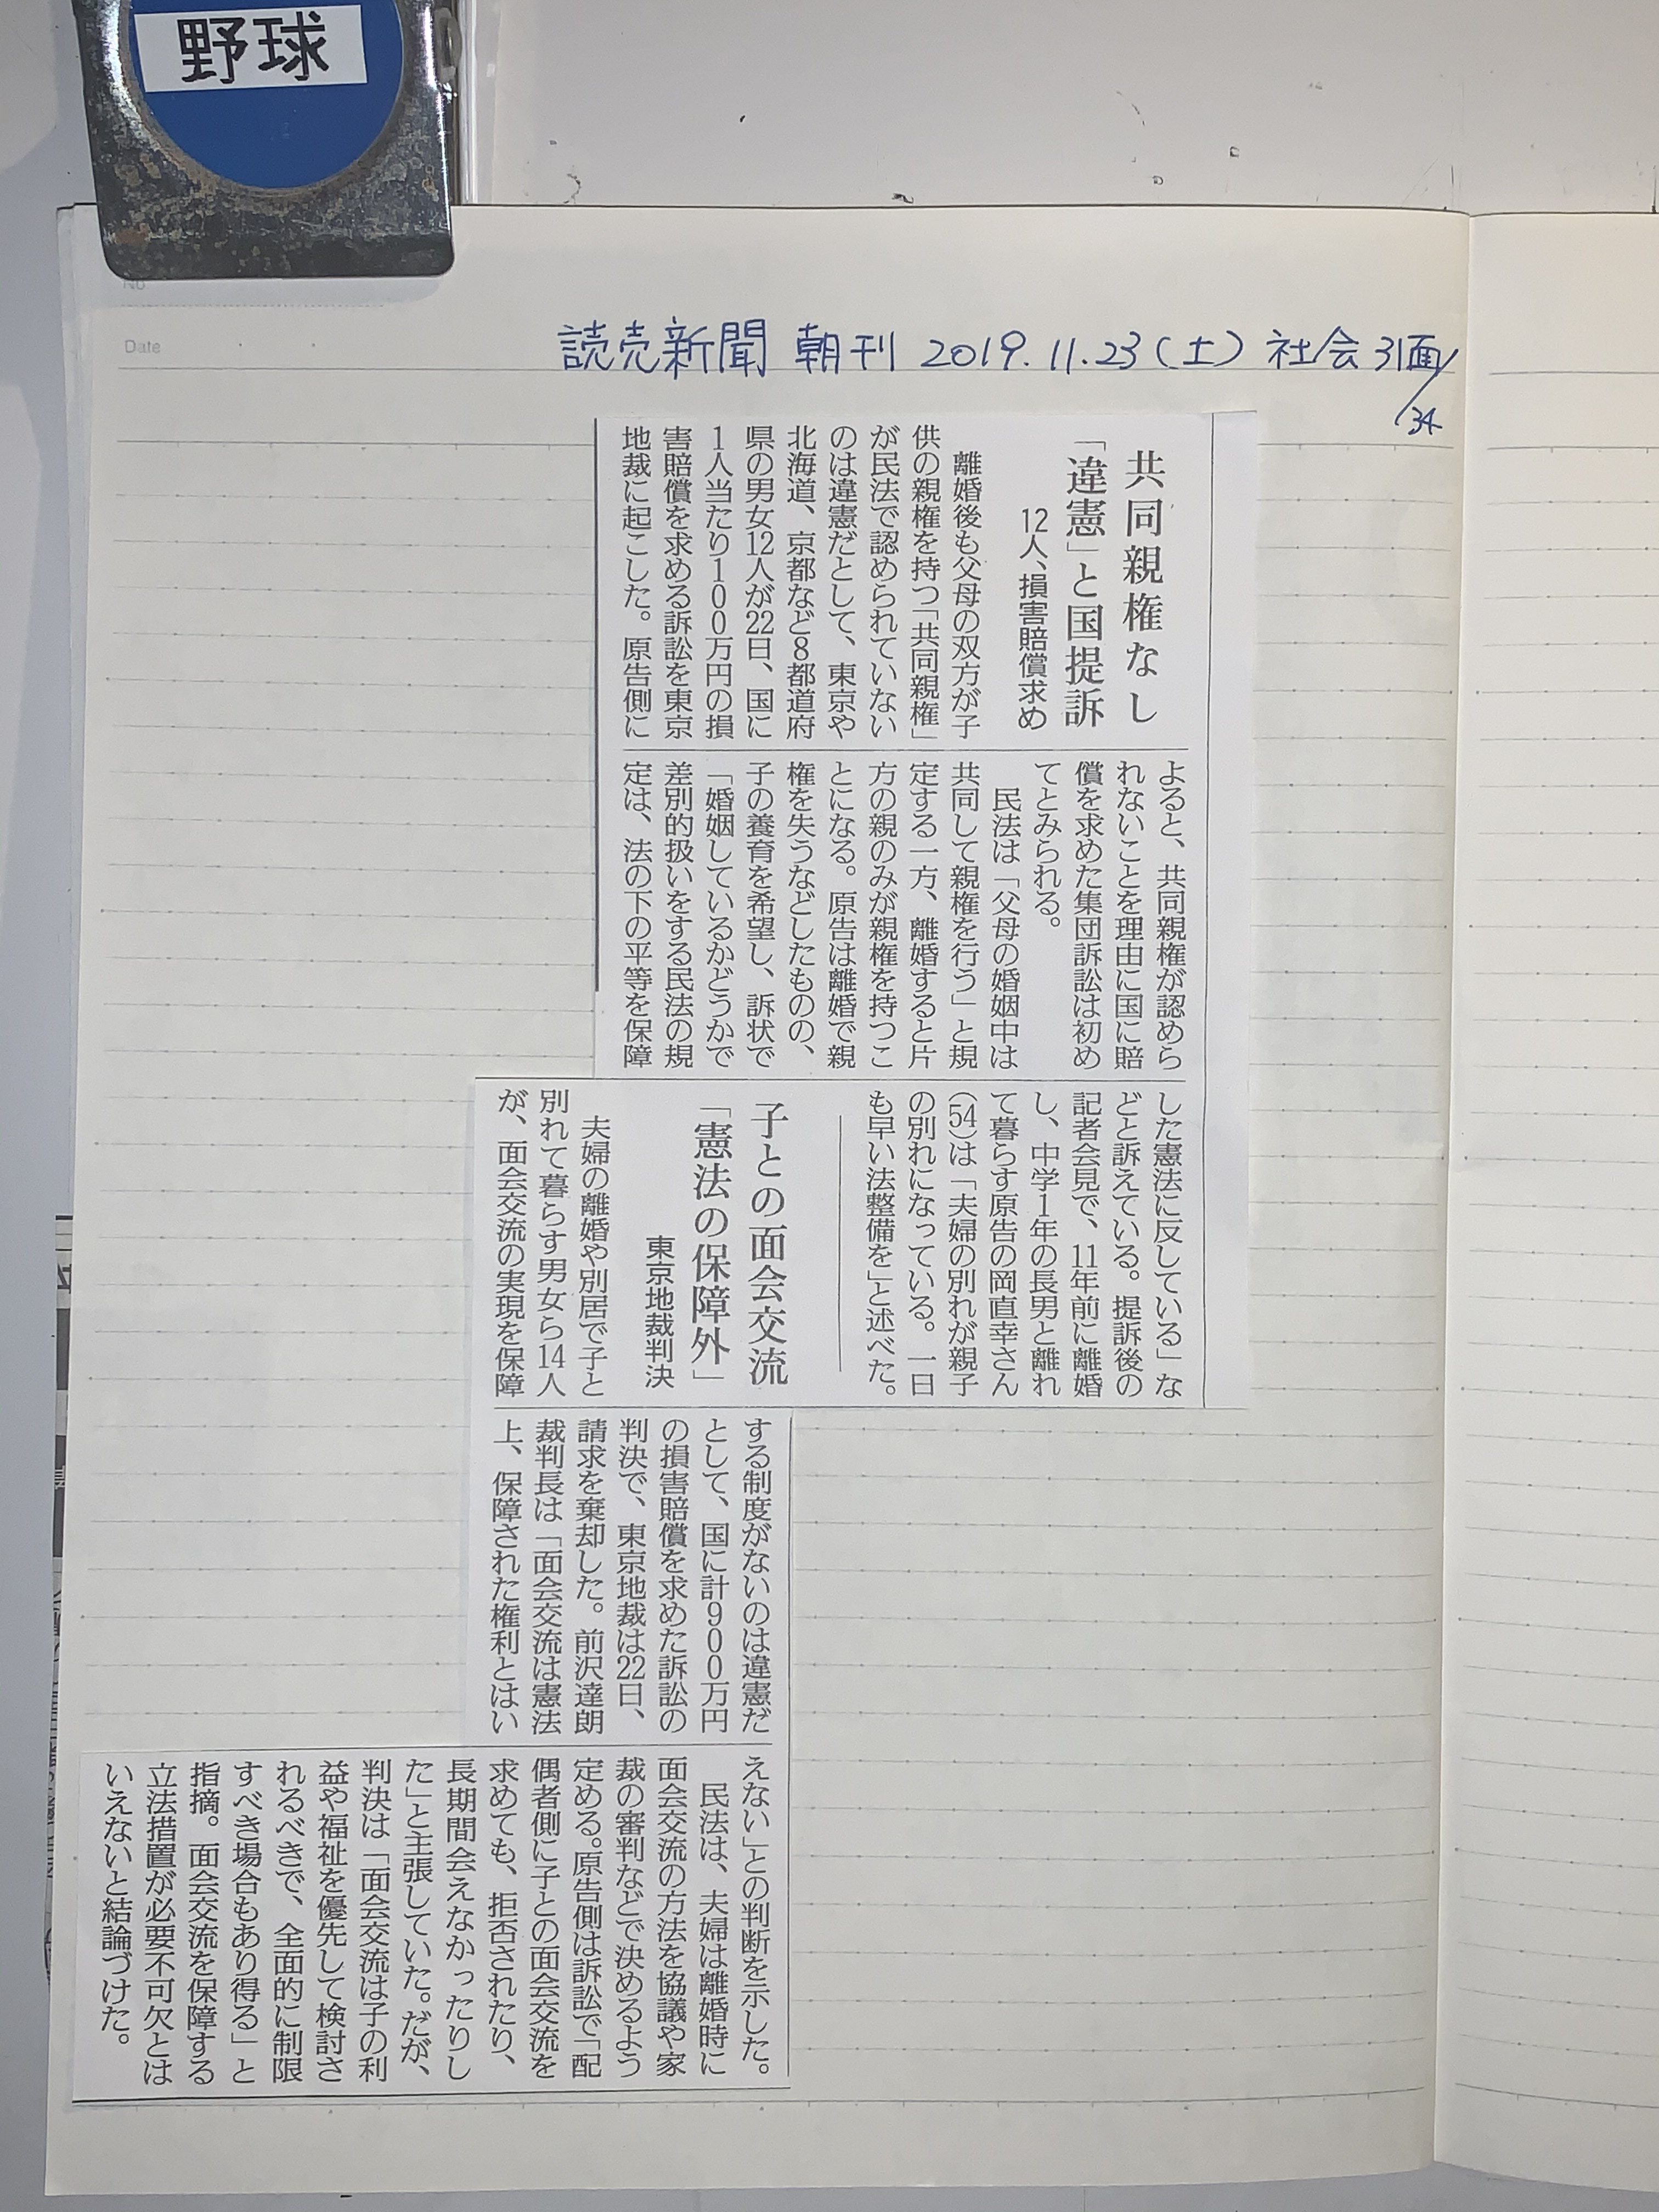 野球
No
Date
読売新聞 朝刊 2019.11.23(土) 社会31面/34
共同親権なし
「違憲」と国提訴
12人、損害賠償求め
離婚後も父母の双方が子
供の親権を持つ「共同親権」
が民法で認められていない
のは違憲だとして、東京や
北海道、京都など8都道府
県の男女12人が22日、国に
1人当たり100万円の損
害賠償を求める訴訟を東京
地裁に起こした。原告側に
よると、共同親権が認めら
れないことを理由に国に賠
償を求めた集団訴訟は初め
てとみられる。
民法は「父母の婚姻中は
共同して親権を行う」と規
定する一方、離婚すると片
方の親のみが親権を持つこ
とになる。原告は離婚で親
権を失うなどしたものの、
子の養育を希望し、訴状で
「婚姻しているかどうかで
差別的扱いをする民法の規
定は、法の下の平等を保障
した憲法に反している」な
どと訴えている。提訴後の
記者会見で、11年前に離婚
し、中学1年の長男と離れ
て暮らす原告の岡直幸さん
(54)は「夫婦の別れが親子
の別れになっている。一日
も早い法整備を」と述べた。
子との面会交流
「憲法の保障外」
東京地裁判決
夫婦の離婚や別居で子と
別れて暮らす男女ら14人
が、面会交流の実現を保障
する制度がないのは違憲だ
として、国に計900万円
の損害賠償を求めた訴訟の
判決で、東京地裁は22日、
請求を棄却した。前沢達朗
裁判長は「面会交流は憲法
上、保障された権利とはい
えない」との判断を示した。
民法は、夫婦は離婚時に
面会交流の方法を協議や家
裁の審判などで決めるよう
定める。原告側は訴訟で「配
偶者側に子との面会交流を
求めても、拒否されたり、
長期間会えなかったりし
た」と主張していた。だが、
判決は「面会交流は子の利
益や福祉を優先して検討さ
れるべきで、全面的に制限
すべき場合もあり得る」と
指摘。面会交流を保障する
立法措置が必要不可欠とは
いえないと結論づけた。